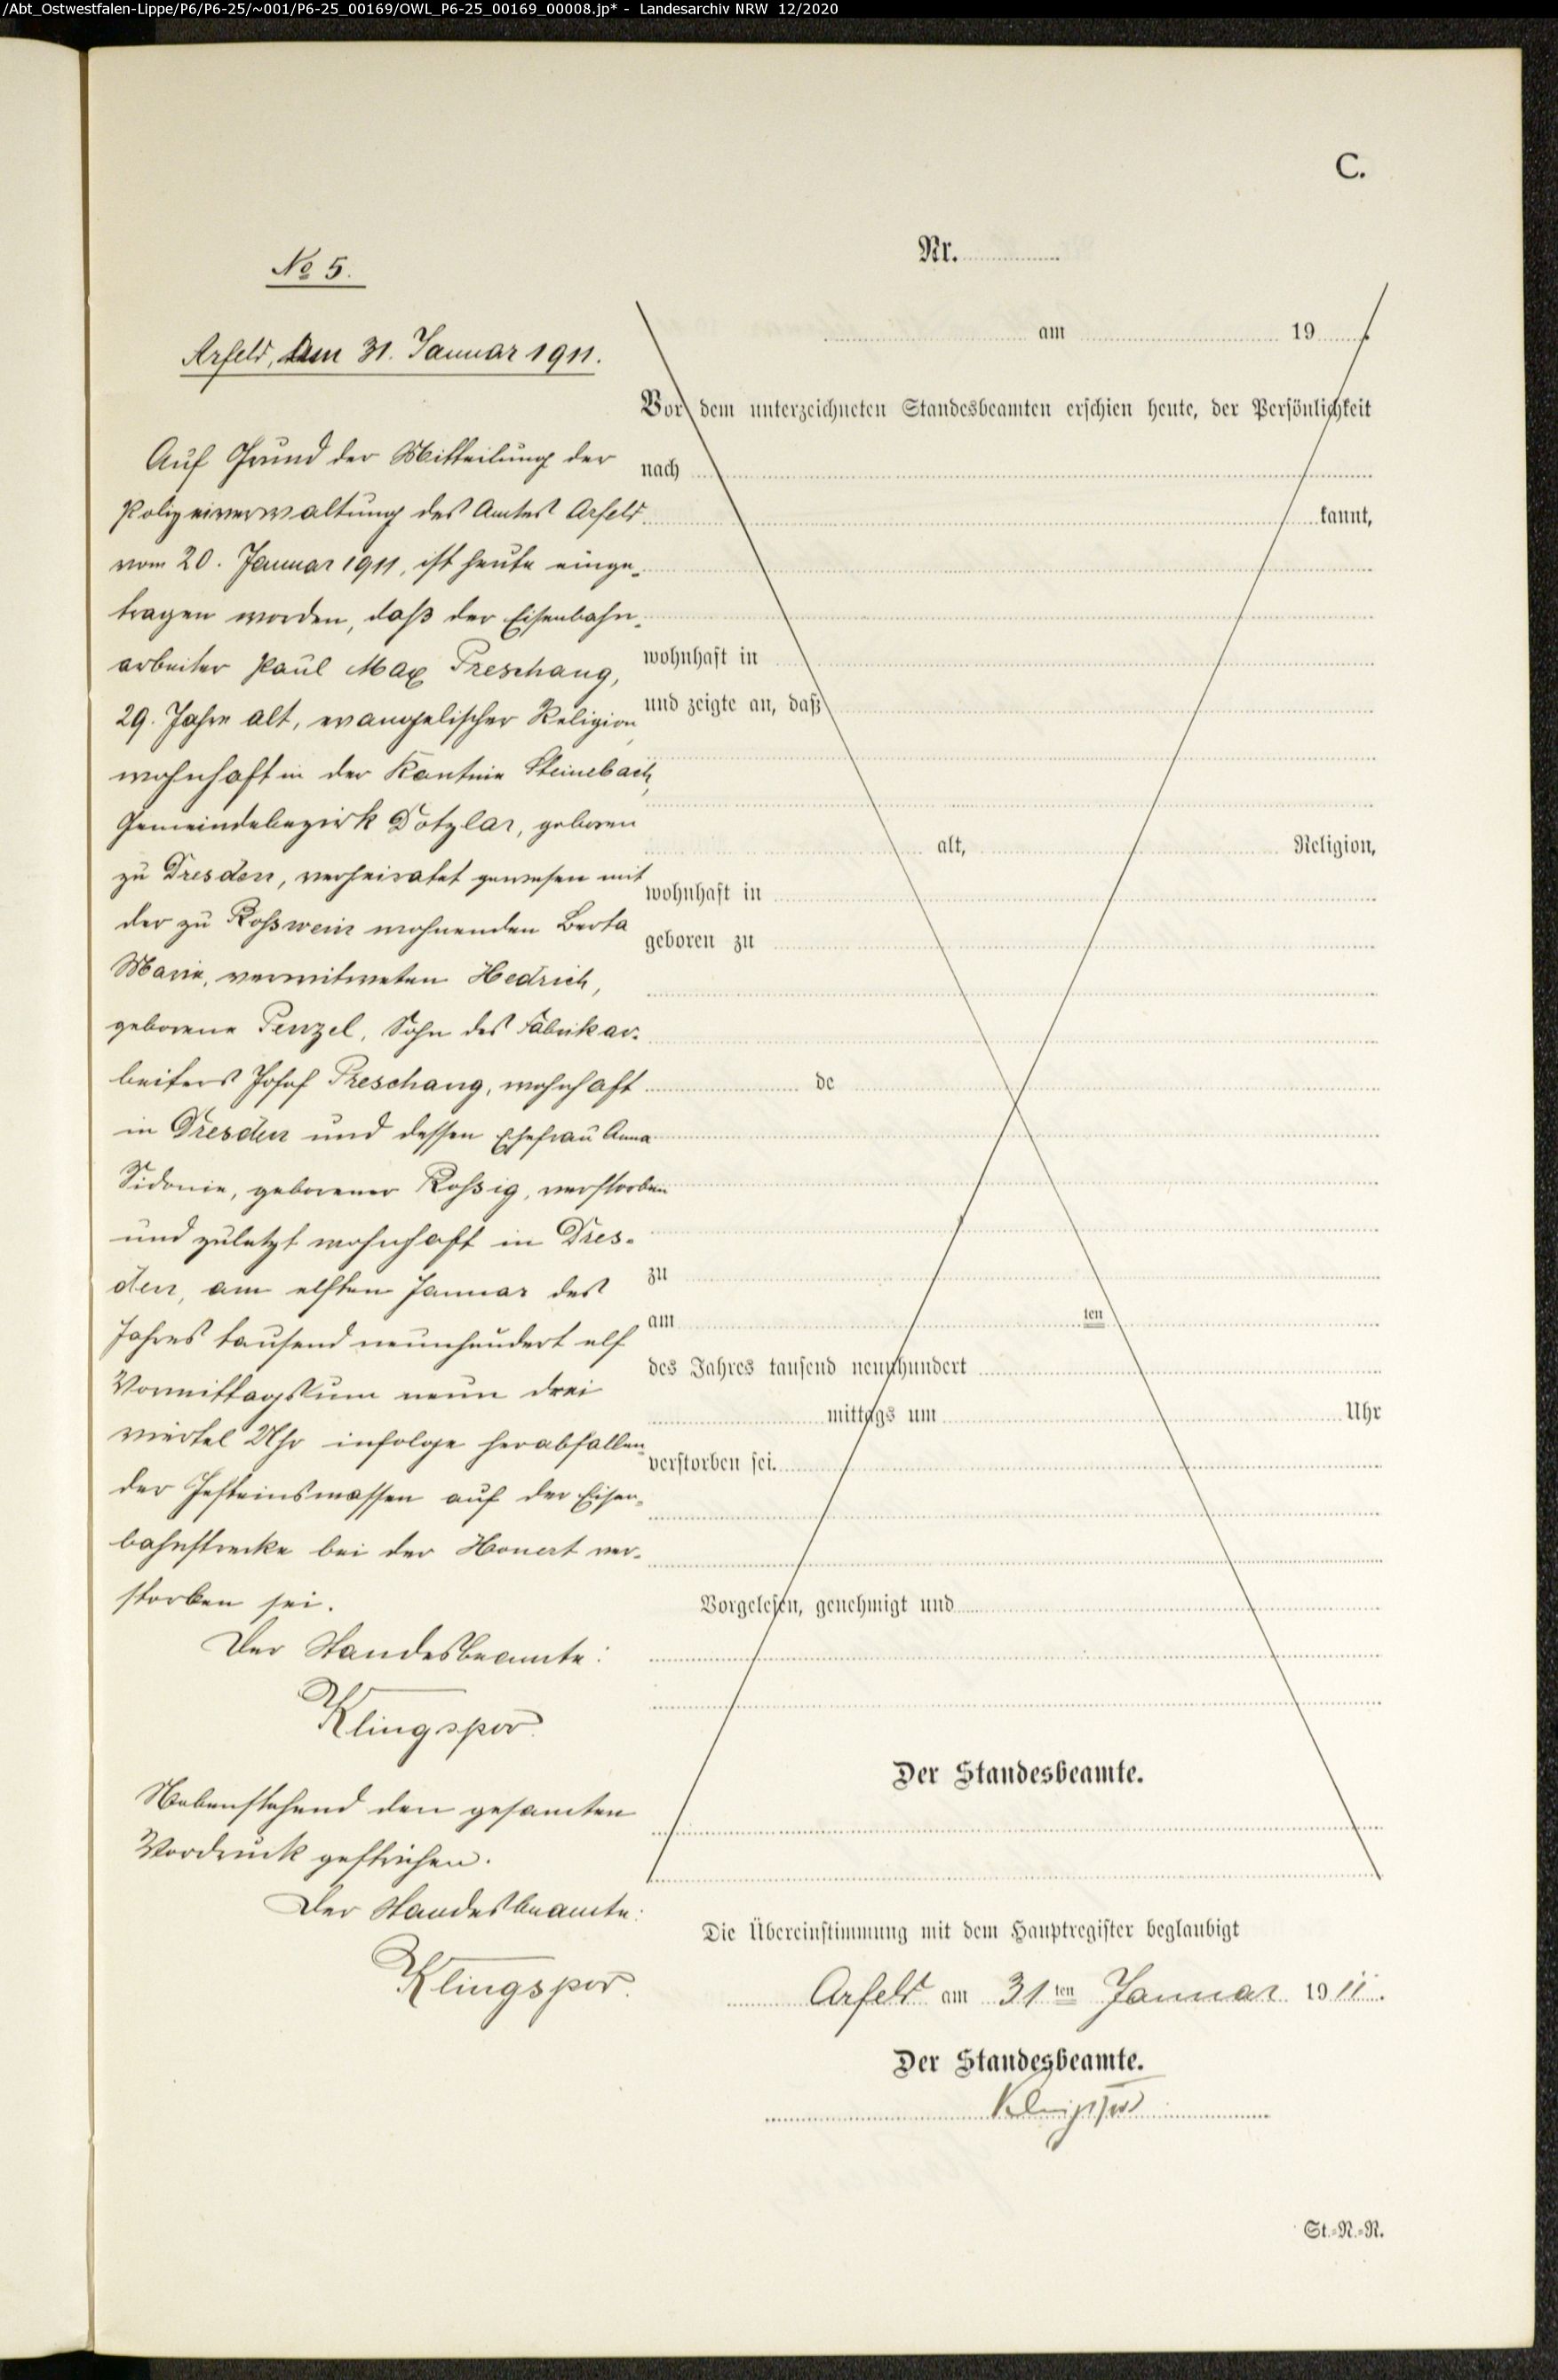 /Abt_Ostwestfalen-Lippe/P6/P6-25/~001/P6-25_00169/OWL_P6-25_00169_00008.jp* - Landesarchiv NRW 12/2020
C.
No 5.
Arfeld, am 31. Januar 1911.
Auf Grund der Mitteilung der
Polizeiverwaltung des Amtes Arfeld
vom 20. Januar 1911, ist heute einge-
tragen worden, daß der Eisenbahn-
arbeiter Paul Max Preschang,
29. Jahre alt, evangelischer Religion,
wohnhaft in der Kantine Steinebach,
Gemeindebezirk Dotzlar, geboren
zu Dresden, verheiratet gewesen mit
der zu Roßwein wohnenden Berta
Marie, verwitweten Hedrich,
geborene Penzel, Sohn des Fabrikar-
beiters Josef Preschang, wohnhaft
in Dresden und dessen Ehefrau Anna
Sidonie, geborener Roßig, verstorben
und zuletzt wohnhaft in Dres-
den, am elften Januar des
Jahres tausend neunhundert elf
Vormittags um neun drei
viertel Uhr infolge herabfallen-
der Gesteinsmassen auf der Eisen-
bahnstrecke bei der Honert ver-
storben sei.
Der Standesbeamte:
Klingspor.
Nebenstehend den gesamten
Vordruck gestrichen.
Der Standesbeamte:
Klingspor.
Nr.
am 19
Vor dem unterzeichneten Standesbeamten erschien heute, der Persönlichkeit
nach
kannt,
wohnhaft in
und zeigte an, daß
alt, Religion,
wohnhaft in
geboren zu
de
zu
am ten
des Jahres tausend neunhundert
mittags um Uhr
verstorben sei.
Vorgelesen, genehmigt und
Der Standesbeamte.
Die Übereinstimmung mit dem Hauptregister beglaubigt
Arfeld am 31 ten Januar 1911.
Der Standesbeamte.
Klingspor
St.-R.-R.